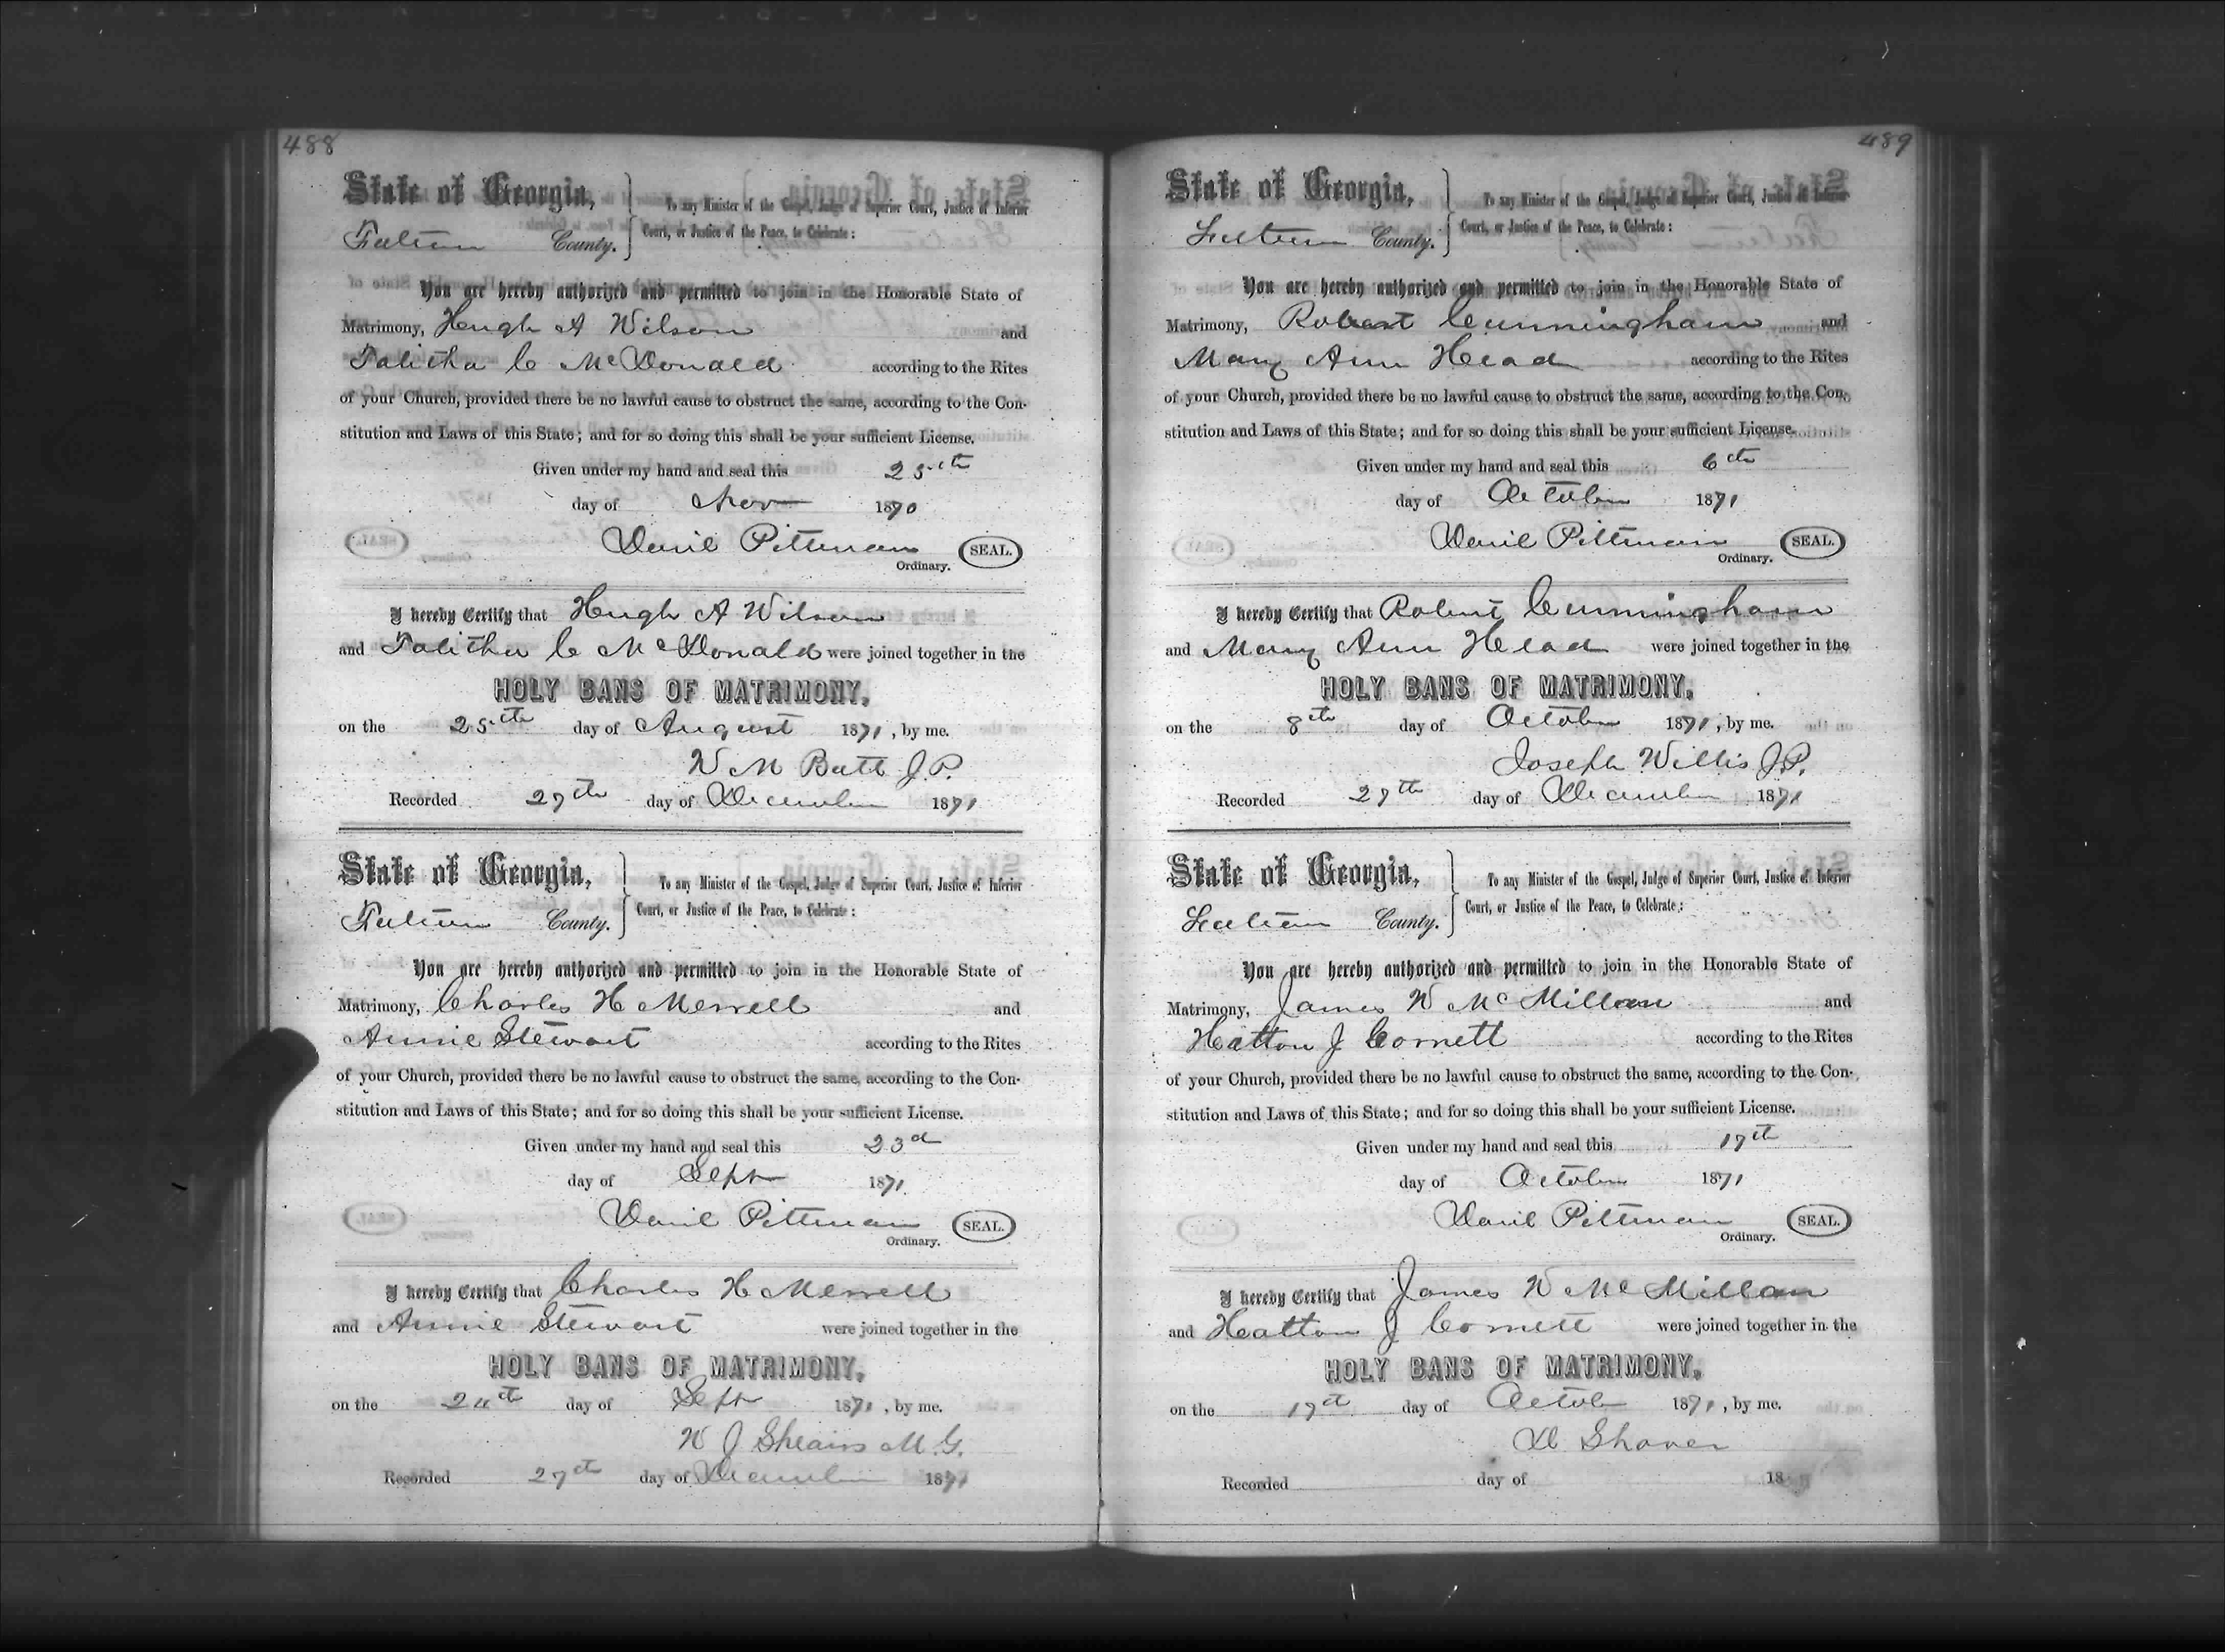 488
State of Georgia,
Fulton County.
To any Minister of the Gospel, Judge of Superior Court, Justice of Inferior
Court, or Justice of the Peace, to Celebrate:
You are hereby authorized and permitted to join in the Honorable State of
Matrimony, Hugh A Wilson and
Talitha C McDonald according to the Rites
of your Church, provided there be no lawful cause to obstruct the same, according to the Con-
stitution and Laws of this State; and for so doing this shall be your sufficient License.
Given under my hand and seal this 25th
day of Nov 1870
Daniel Pittman SEAL.
Ordinary.
I hereby Certify that Hugh A Wilson
and Talitha C McDonald were joined together in the
HOLY BANS OF MATRIMONY,
on the 25th day of August 1871, by me.
W M Butt J.P.
Recorded 27th day of December 1871
State of Georgia,
Fulton County.
To any Minister of the Gospel, Judge of Superior Court, Justice of Inferior
Court, or Justice of the Peace, to Celebrate:
You are hereby authorized and permitted to join in the Honorable State of
Matrimony, Charles H Merrell and
Annie Stewart according to the Rites
of your Church, provided there be no lawful cause to obstruct the same, according to the Con-
stitution and Laws of this State; and for so doing this shall be your sufficient License.
Given under my hand and seal this 23d
day of Sept 1871
Daniel Pittman SEAL.
Ordinary.
I hereby Certify that Charles H Merrell
and Annie Stewart were joined together in the
HOLY BANS OF MATRIMONY,
on the 24th day of Sept 1871, by me.
W J Shearrs M.G.
Recorded 27th day of December 1871
489
State of Georgia,
Fulton County.
To any Minister of the Gospel, Judge of Superior Court, Justice of Inferior
Court, or Justice of the Peace, to Celebrate:
You are hereby authorized and permitted to join in the Honorable State of
Matrimony, Robert Cunningham and
Mary Ann Head according to the Rites
of your Church, provided there be no lawful cause to obstruct the same, according to the Con-
stitution and Laws of this State; and for so doing this shall be your sufficient License.
Given under my hand and seal this 6th
day of October 1871
Daniel Pittman SEAL.
Ordinary.
I hereby Certify that Robert Cunningham
and Mary Ann Head were joined together in the
HOLY BANS OF MATRIMONY,
on the 8th day of October 1871, by me.
Joseph Willis J.P.
Recorded 27th day of December 1871
State of Georgia,
Fulton County.
To any Minister of the Gospel, Judge of Superior Court, Justice of Inferior
Court, or Justice of the Peace, to Celebrate:
You are hereby authorized and permitted to join in the Honorable State of
Matrimony, James W McMillan and
Hatton J Cornett according to the Rites
of your Church, provided there be no lawful cause to obstruct the same, according to the Con-
stitution and Laws of this State; and for so doing this shall be your sufficient License.
Given under my hand and seal this 17th
day of October 1871
Daniel Pittman SEAL.
Ordinary.
I hereby Certify that James W McMillan
and Hatton J Cornett were joined together in the
HOLY BANS OF MATRIMONY,
on the 17th day of Octob 1871, by me.
D Shaver
Recorded day of 18